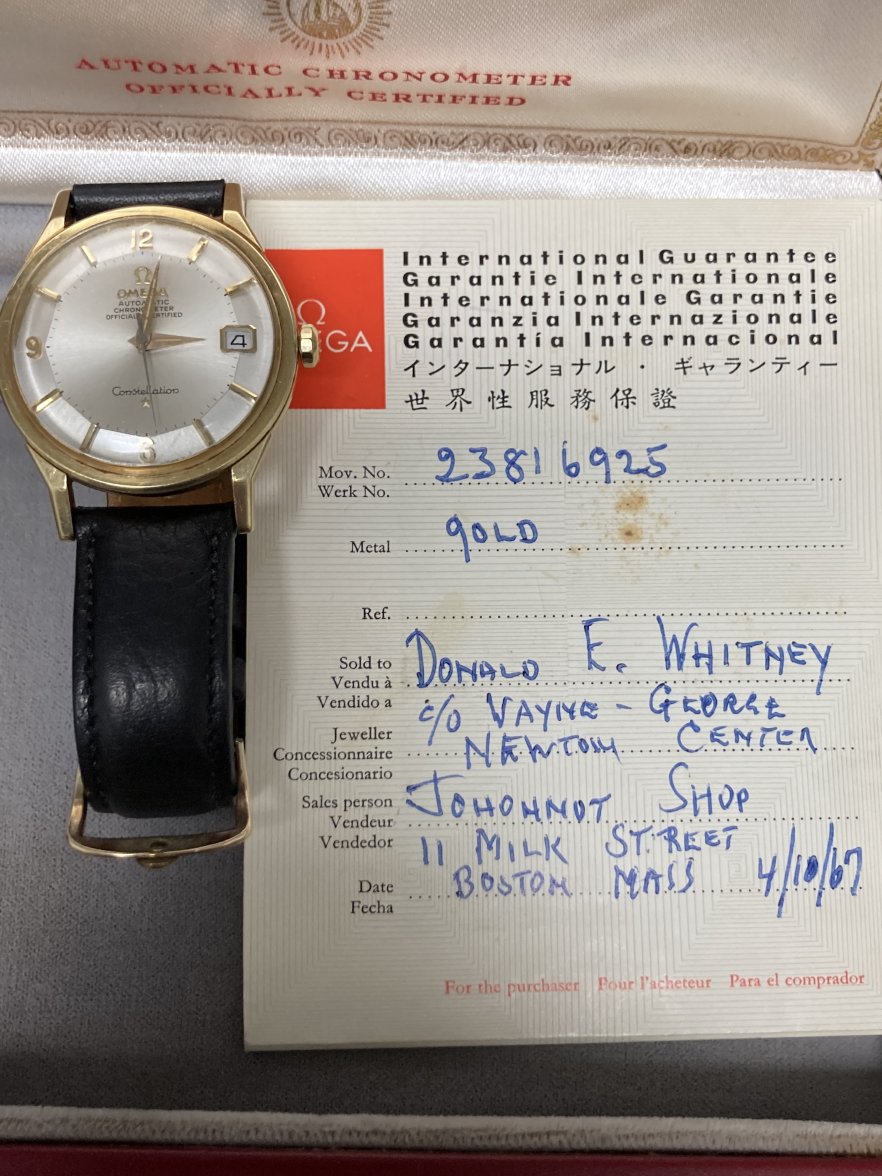 AUTOMATIC CHRONOMETER
OFFICIALLY CERTIFIED
12
9
6
4
Ω
OMEGA
AUTOMATIC
CHRONOMETER
OFFICIALLY CERTIFIED
Constellation
Ω
EGA
International Guarantee
Garantie Internationale
Internationale Garantie
Garanzia Internazionale
Garantía Internacional
インターナショナル・ギャランティー
世界性服務保證
Mov. No. 23816925
Werk No.
Metal gOLD
Ref.
Sold to DONALD E. WHITNEY
Vendu à
Vendido a c/o VAYNE - GEORGE
Jeweller NEWTON CENTER
Concessionnaire
Concesionario
Sales person JOHONNOT SHOP
Vendeur
Vendedor 11 MILK STREET
Date BOSTON MASS 4/10/67
Fecha
For the purchaser Pour l'acheteur Para el comprador